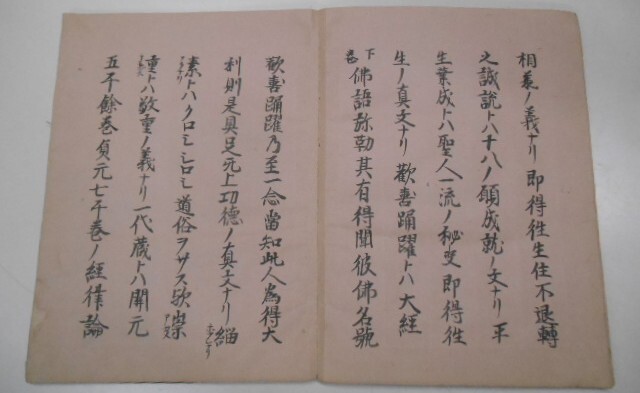 相義ノ義ナリ即得徃生住不退轉
之誠説トハ十八ノ願成就ノ文ナリ平
生業成トハ聖人一流ノ秘叓即得徃
生ノ真文ナリ歡喜踊躍トハ大経
下巻 佛語弥勒其有得聞彼佛名號
歡喜踊躍乃至一念當知此人為得大
利則是具足无上功德ノ真文ナリ緇
素トハクロシシロシ道俗ヲサス欤崇
重トハ敬重ノ義ナリ一代蔵トハ開元
五千餘巻貞元七千巻ノ経律論